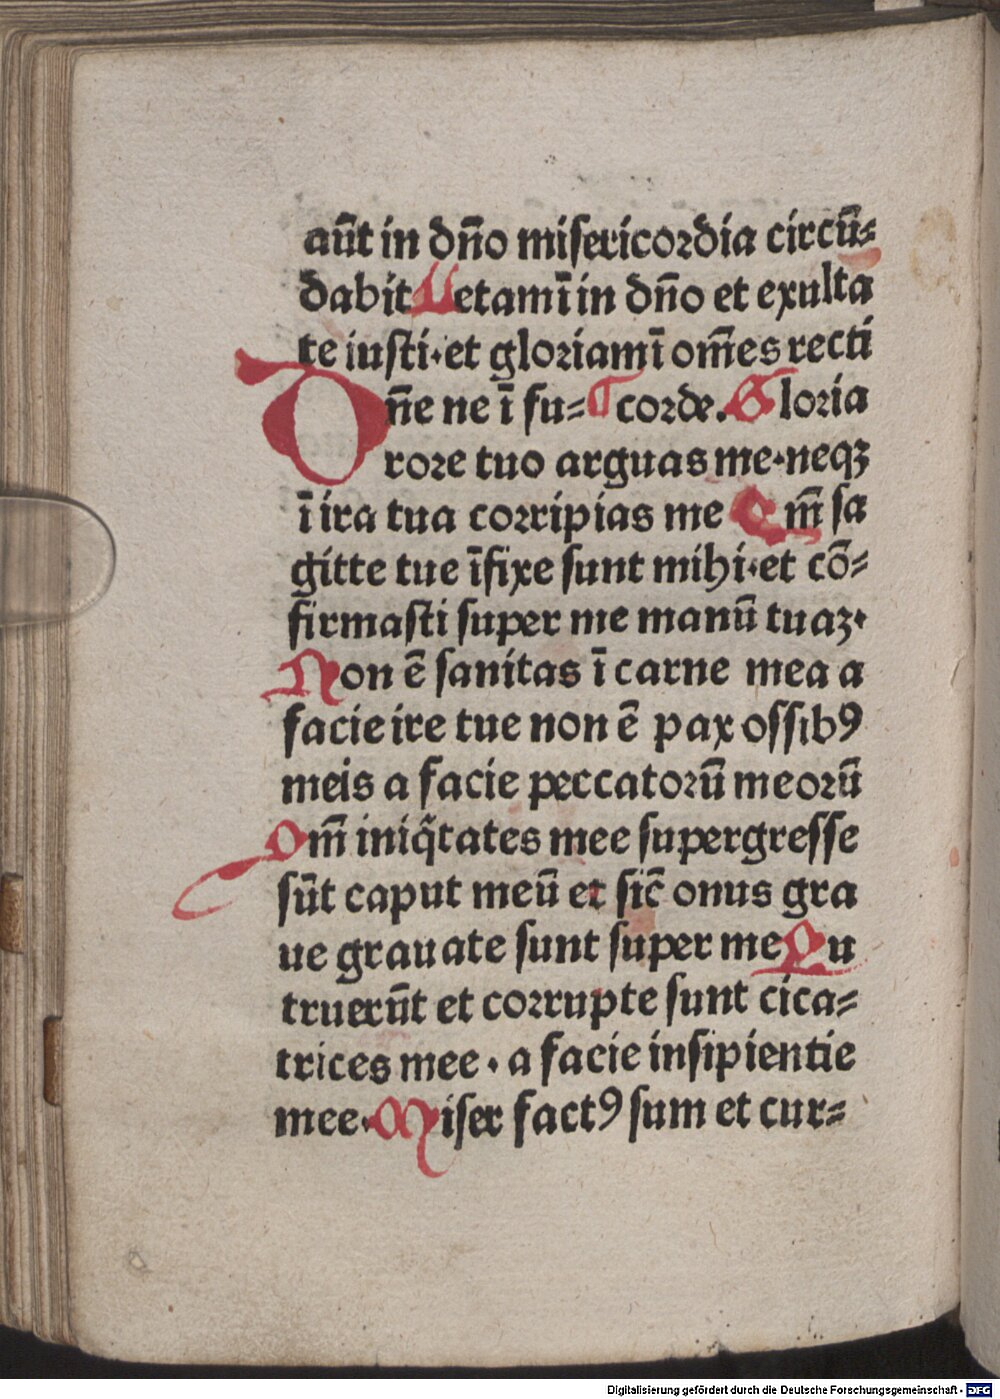 aūt in dn̄o miſericoꝛdia circū⸗
dabit Letamī in dn̄o et exulta
te iuſti·et gloꝛiamī om̄es recti
Dn̄e ne ī fu⸗ coꝛde. Gloꝛia
roꝛe tuo arguas me·neqꝫ
ī ira tua coꝛripias me Qm̄ ſa
gitte tue īfixe ſunt mihi·et cō⸗
firmaſti ſuper me manū tuaꝫ·
Non ē ſanitas ī carne mea a
facie ire tue non ē pax oſſibꝰ
meis a facie peccatoꝛū meoꝛū
Qm̄ iniq̄tates mee ſupergreſſe
ſūt caput meū et ſic̄ onus gra
ue grauate ſunt ſuper me Pu
truerūt et coꝛrupte ſunt cica⸗
trices mee · a facie inſipientie
mee· Miſer factꝰ ſum et cur⸗
Digitalisierung gefördert durch die Deutsche Forschungsgemeinschaft - DFG